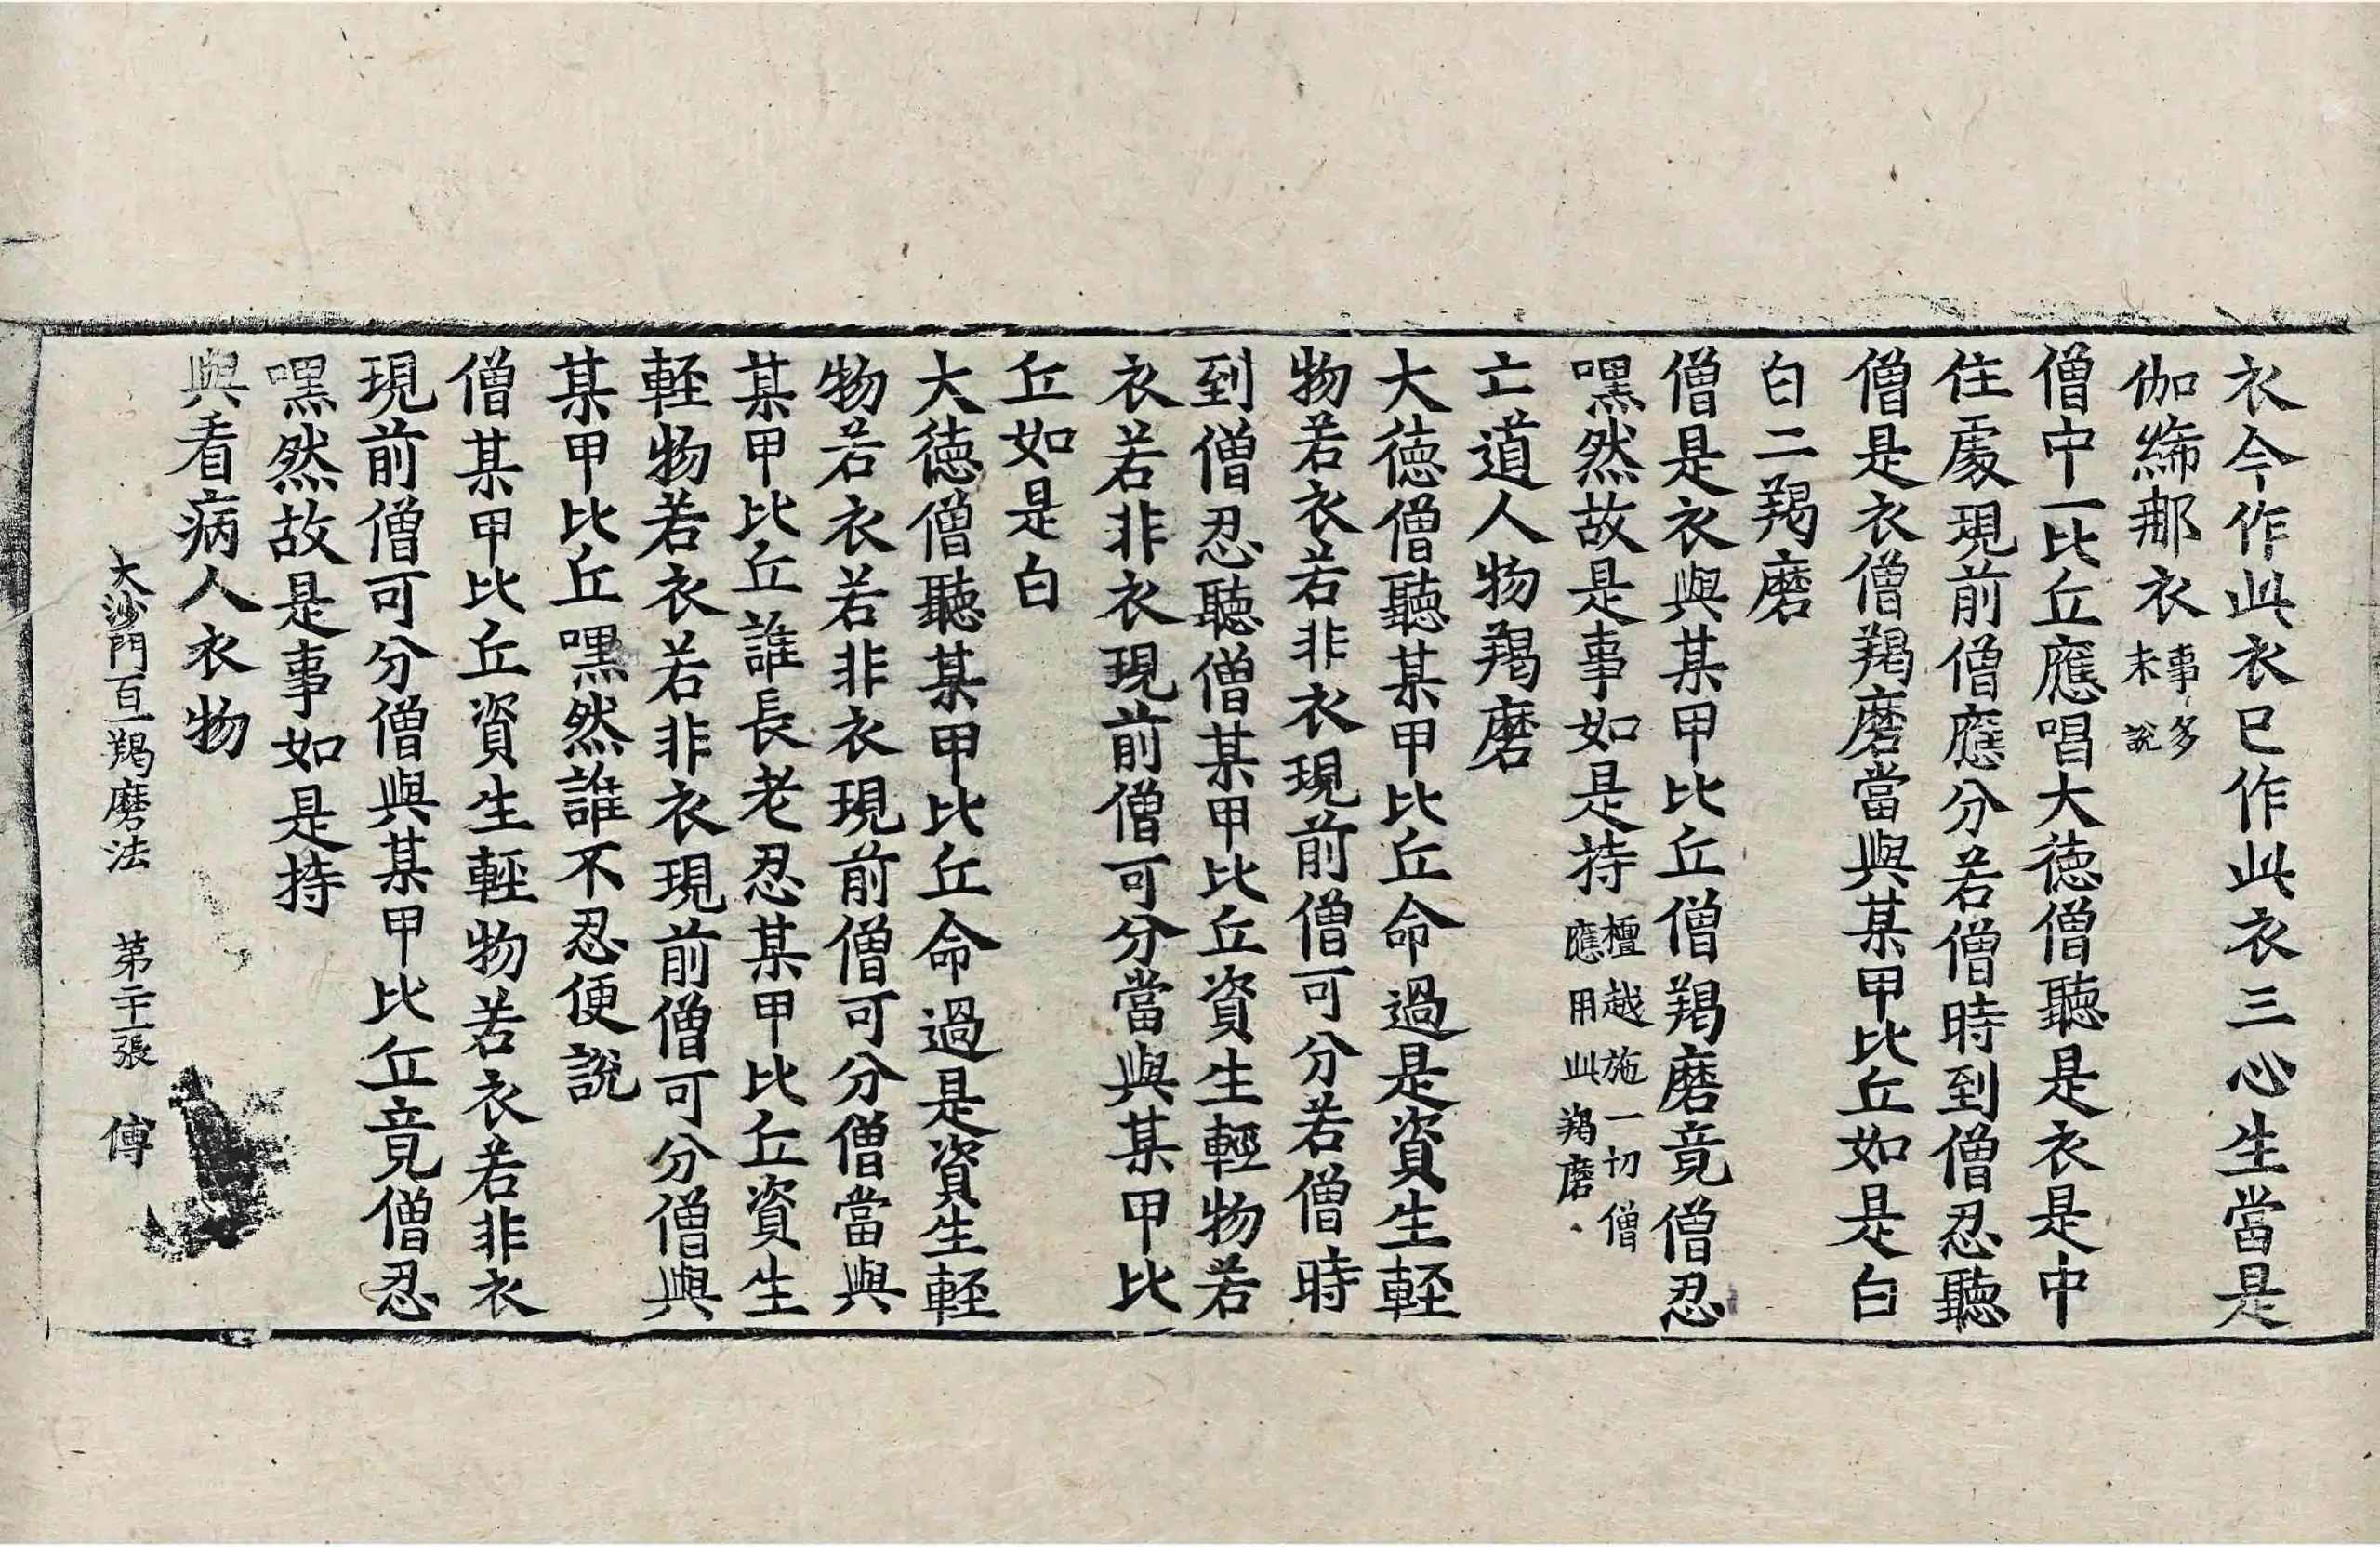 衣今作此衣已作此衣三心生當是
伽絺那衣事多未說
僧中一比丘應唱大德僧聽是衣是中
住處現前僧應分若僧時到僧忍聽
僧是衣僧羯磨當與某甲比丘如是白
白二羯磨
僧是衣與某甲比丘僧羯磨竟僧忍
嘿然故是事如是持檀越施一切僧應用此羯磨
亡道人物羯磨
大德僧聽某甲比丘命過是資生輕
物若衣若非衣現前僧可分若僧時
到僧忍聽僧某甲比丘資生輕物若
衣若非衣現前僧可分當與某甲比
丘如是白
大德僧聽某甲比丘命過是資生輕
物若衣若非衣現前僧可分僧當與
某甲比丘誰長老忍某甲比丘資生
輕物若衣若非衣現前僧可分僧與
某甲比丘嘿然誰不忍便說
僧某甲比丘資生輕物若衣若非衣
現前僧可分僧與某甲比丘竟僧忍
嘿然故是事如是持
與看病人衣物
大沙門百一羯磨法 第二十一張 傅